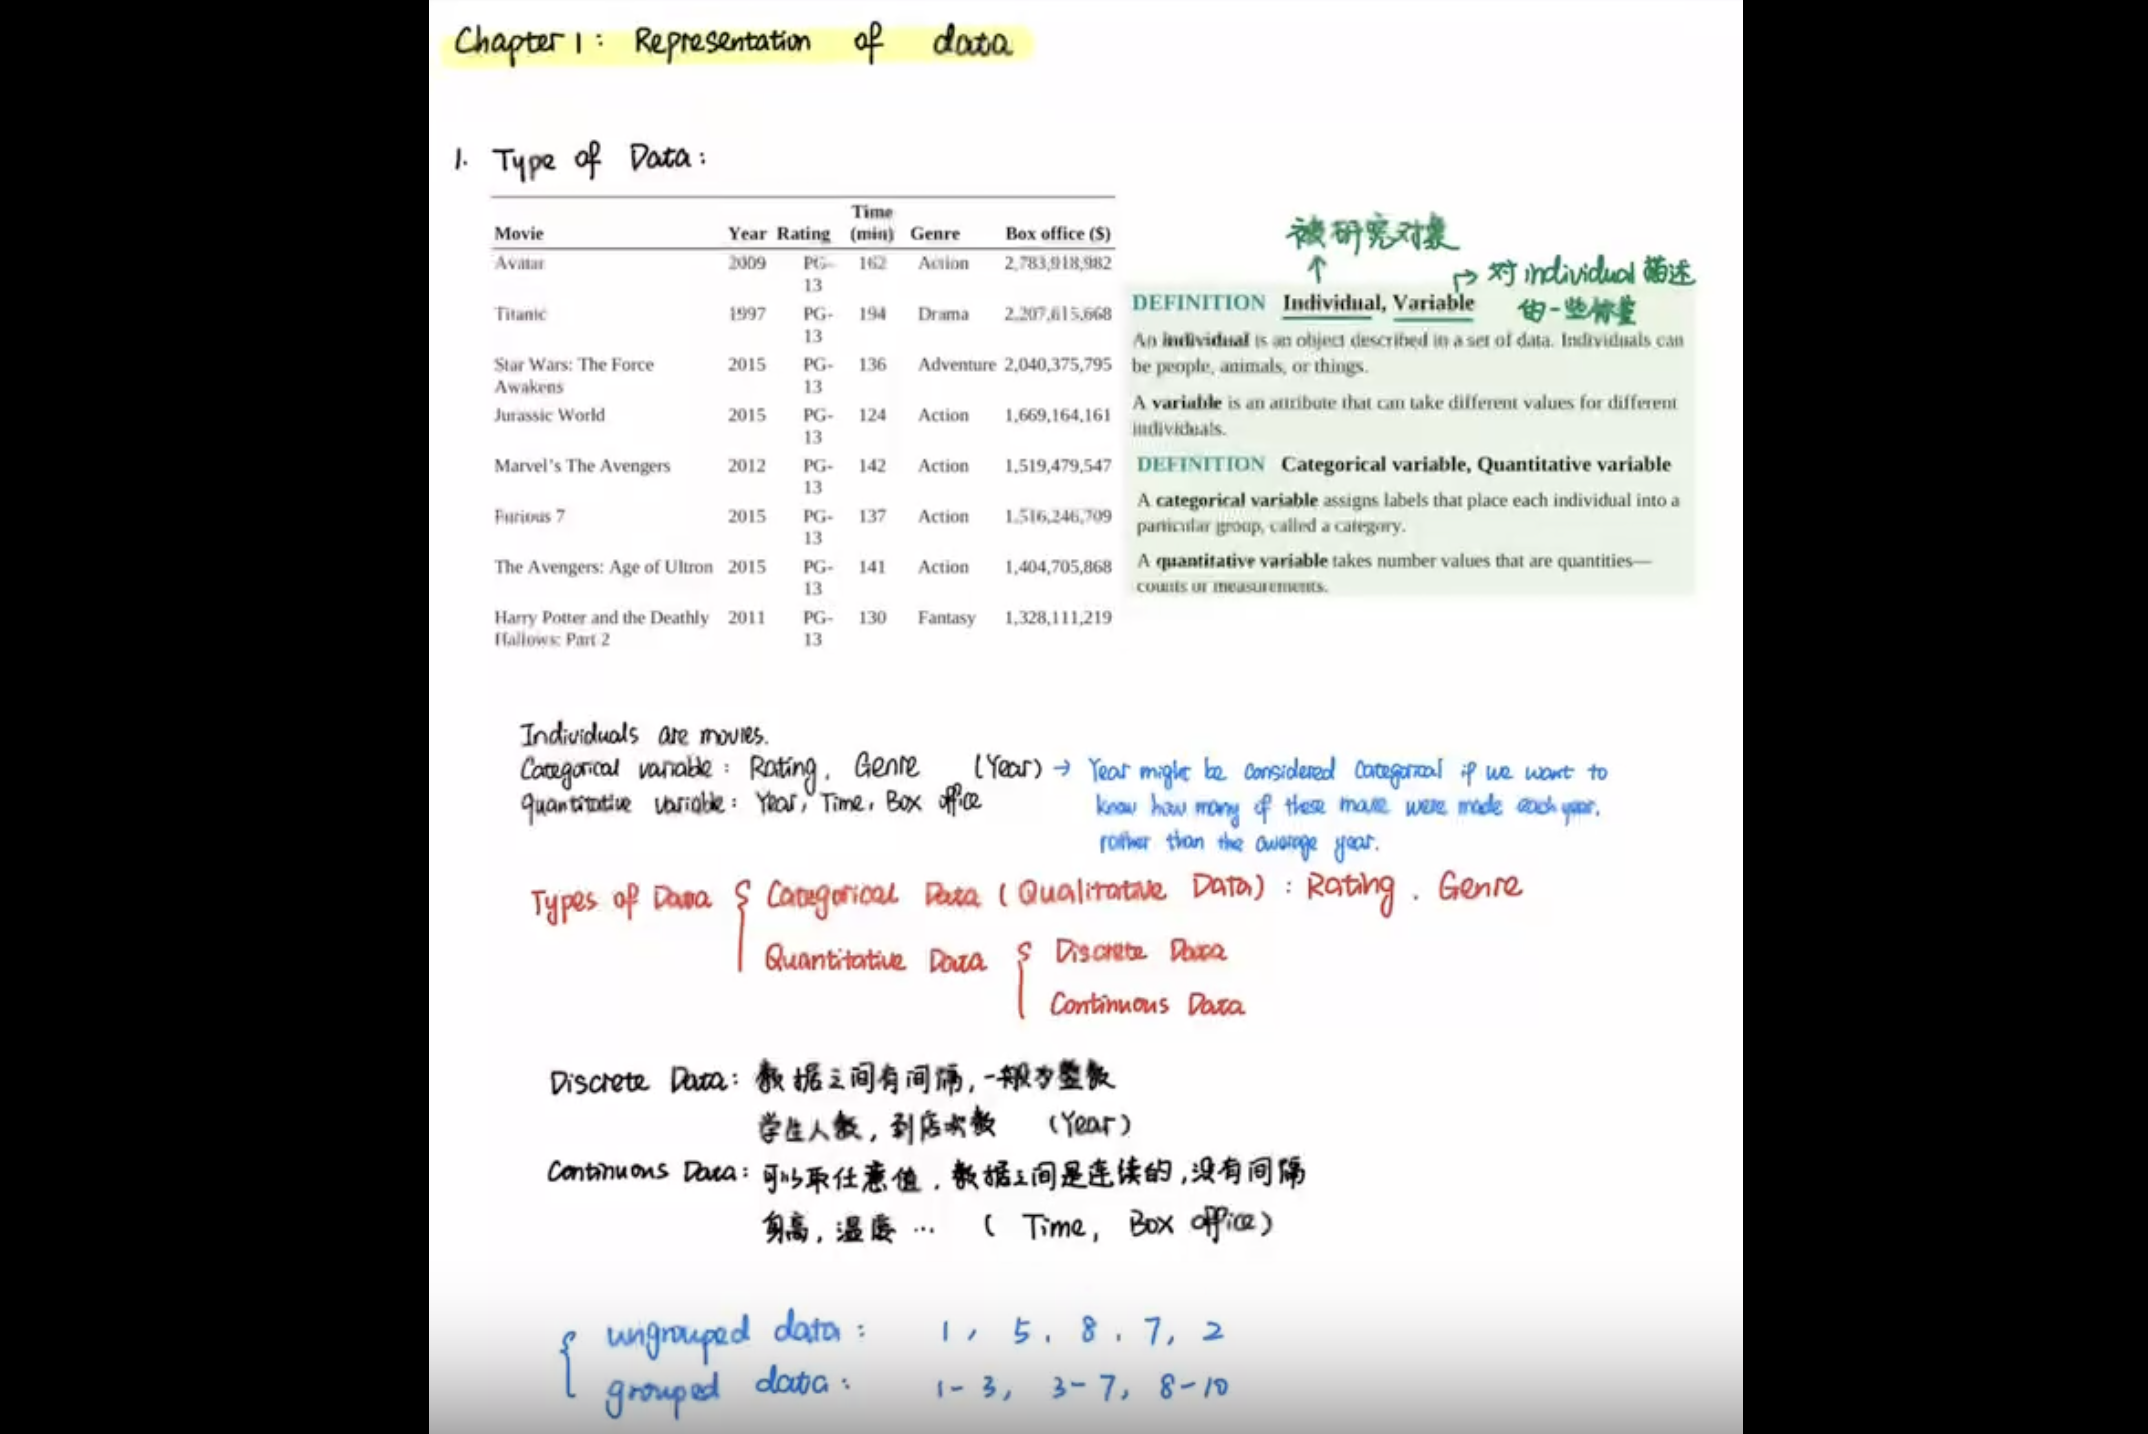 Chapter 1: Representation of data
1. Type of Data:
Movie Year Rating Time (min) Genre Box office ($)
Avatar 2009 PG-13 162 Action 2,783,918,982
Titanic 1997 PG-13 194 Drama 2,207,615,668
Star Wars: The Force Awakens 2015 PG-13 136 Adventure 2,040,375,795
Jurassic World 2015 PG-13 124 Action 1,669,164,161
Marvel's The Avengers 2012 PG-13 142 Action 1,519,479,547
Furious 7 2015 PG-13 137 Action 1,516,246,709
The Avengers: Age of Ultron 2015 PG-13 141 Action 1,404,705,868
Harry Potter and the Deathly Hallows: Part 2 2011 PG-13 130 Fantasy 1,328,111,219
被研究对象
对individual描述
的一些标量
DEFINITION Individual, Variable
An individual is an object described in a set of data. Individuals can
be people, animals, or things.
A variable is an attribute that can take different values for different
individuals.
DEFINITION Categorical variable, Quantitative variable
A categorical variable assigns labels that place each individual into a
particular group, called a category.
A quantitative variable takes number values that are quantities—
counts or measurements.
Individuals are movies.
Categorical variable: Rating, Genre (Year) → Year might be considered categorical if we want to
know how many of these movie were made each year,
rather than the average year.
quantitative variable: Year, Time, Box office
Types of Data { Categorical Data (Qualitative Data): Rating. Genre
Quantitative Data { Discrete Data
Continuous Data
Discrete Data: 数据之间有间隔,一般为整数
学生人数,到店次数 (Year)
Continuous Data: 可以取任意值,数据之间是连续的,没有间隔
身高,温度… ( Time, Box office)
{ ungrouped data: 1, 5, 8, 7, 2
grouped data: 1-3, 3-7, 8-10